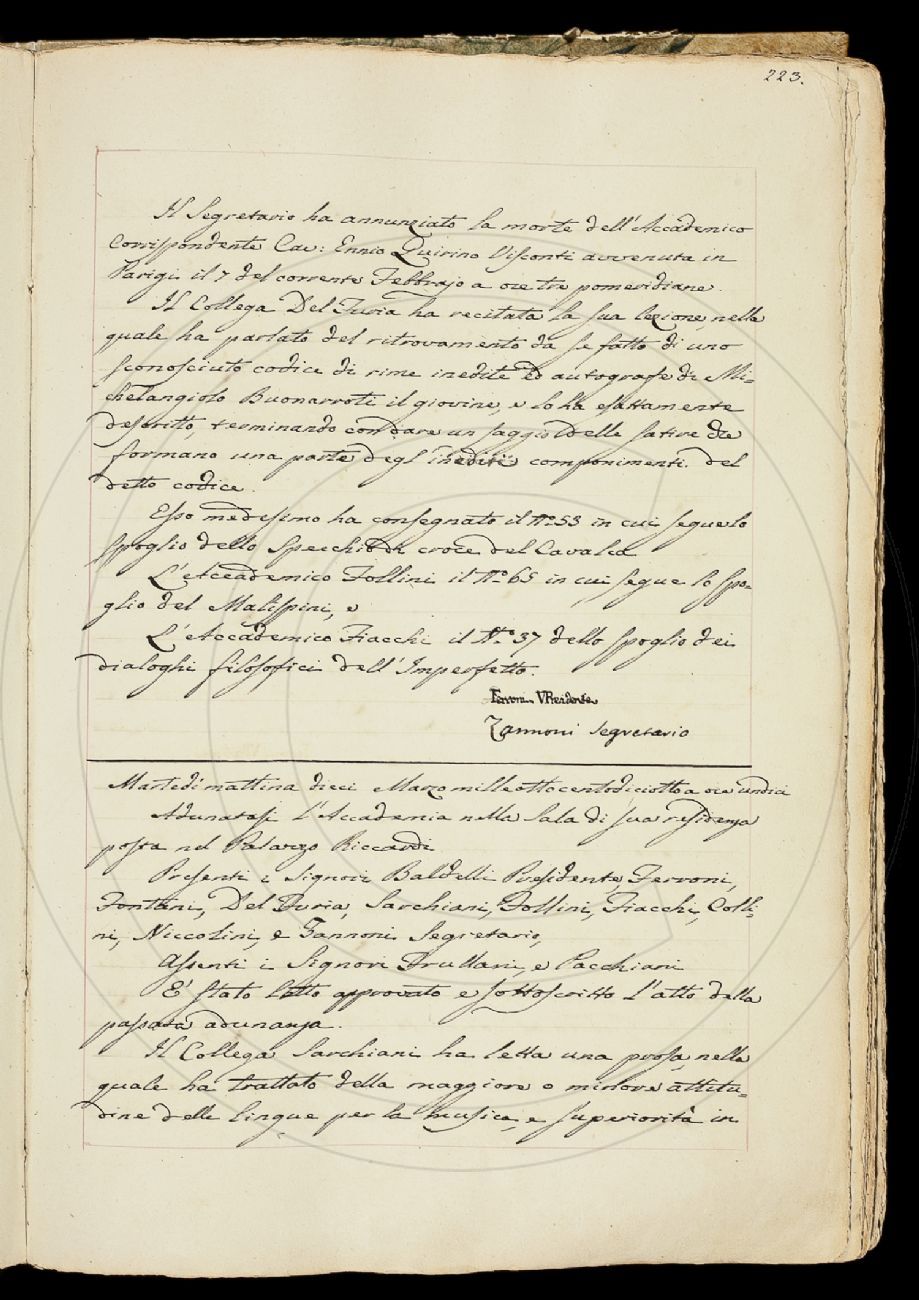 223.
Il Segretario ha annunziato la morte dell'Accademico
Corrispondente Cav: Ennio Quirino Visconti avvenuta in
Parigi il 7 del corrente Febbrajo a ore tre pomeridiane.
Il Collega Del Furia ha recitata la sua lezione, nella
quale ha parlato del ritrovamento da se fatto di uno
sconosciuto codice di rime inedite ed autografe di Mi=
chelangiolo Buonarroti il giovine, e lo ha esattamente
descritto, terminando con dare un saggio delle satire che
formano una parte degl'inediti componimenti del
detto codice.
Esso medesimo ha consegnato il N.º 53 in cui segue lo
spoglio dello Specchio di croce del Cavalca
L'Accademico Follini il N.º 65 in cui segue lo spo=
glio del Malispini, e
L'Accademico Fiacchi il N.º 37 dello spoglio dei
dialoghi filosofici dell'Imperfetto.
Ferroni VPresidente
Zannoni Segretario
Martedì mattina dieci Marzo mille ottocentodiciotto a ore undici
Adunatasi l'Accademia nella Sala di sua residenza
posta nel Palazzo Riccardi
Presenti i Signori Baldelli Presidente, Ferroni,
Fontani, Del Furia, Sarchiani, Follini, Fiacchi, Colli=
ni, Niccolini, e Zannoni Segretario,
Assenti i Signori Brullani, e Pacchiani
E' stato letto approvato e sottoscritto l'atto della
passata adunanza.
Il Collega Sarchiani ha letta una prosa, nella
quale ha trattato della maggiore o minore attitu=
dine delle lingue per la musica, e superiorità in